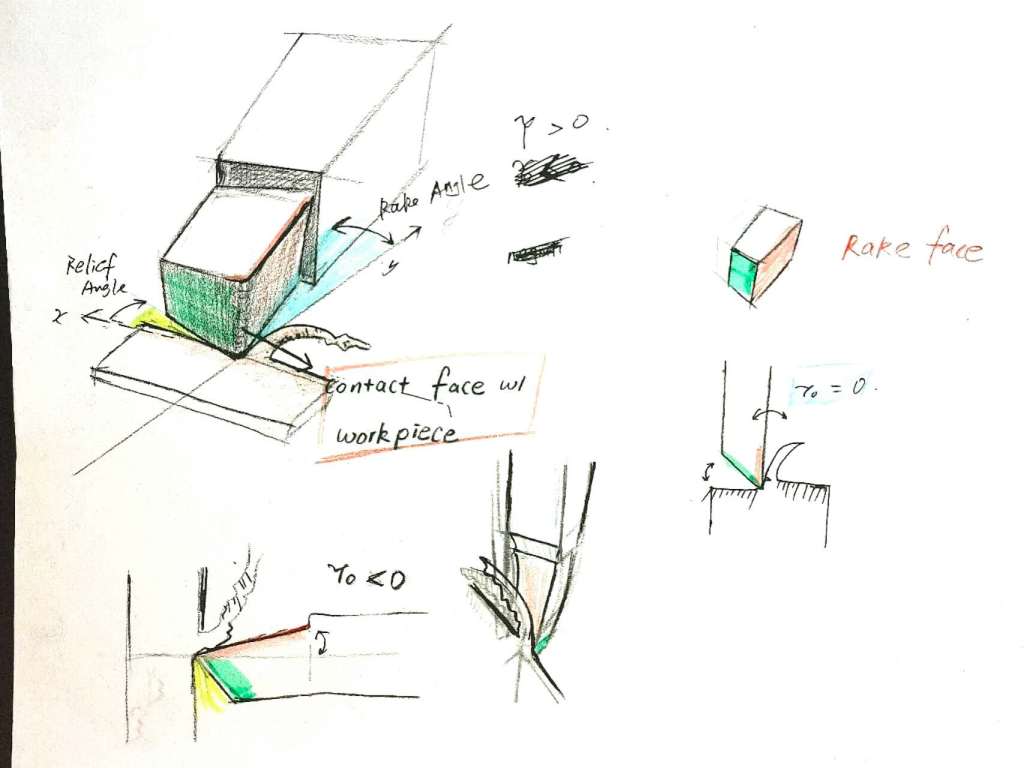 γ > 0.
Rake Angle
y
Relief
Angle
x
Rake face
contact face w/
workpiece
γ₀ = 0.
γ₀ < 0